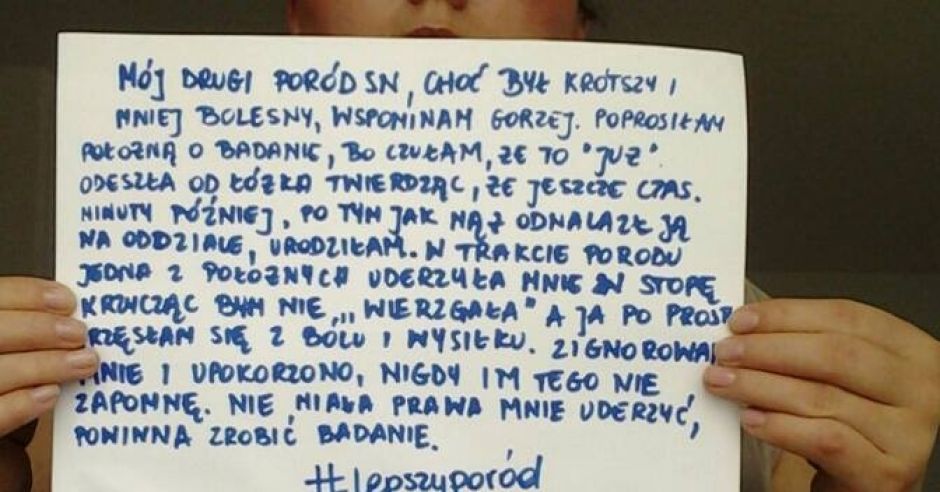 MÓJ DRUGI PORÓD SN, CHOĆ BYŁ KRÓTSZY I
MNIEJ BOLESNY, WSPOMINAM GORZEJ. POPROSIŁAM
POŁOŻNĄ O BADANIE, BO CZUŁAM, ŻE TO "JUŻ".
ODESZŁA OD ŁÓŻKA TWIERDZĄC, ŻE JESZCZE CZAS.
MINUTY PÓŹNIEJ, PO TYM JAK MĄŻ ODNALAZŁ JĄ
NA ODDZIALE, URODZIŁAM. W TRAKCIE PORODU
JEDNA Z POŁOŻNYCH UDERZYŁA MNIE W STOPĘ
KRZYCZĄC BYM NIE „WIERZGAŁA" A JA PO PROST
TRZĘSŁAM SIĘ Z BÓLU I WYSIŁKU. ZIGNOROWA
MNIE I UPOKORZONO, NIGDY IM TEGO NIE
ZAPOMNĘ. NIE MIAŁA PRAWA MNIE UDERZYĆ,
POWINNA ZROBIĆ BADANIE.
#lepszyporód